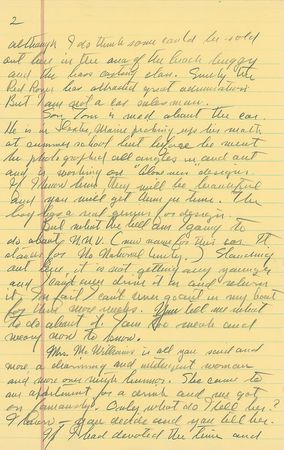 2
although I do think some could be sold
out here in the area of the beach buggy
and the hare casting class. Surely the
Red Roger has attracted great admiration
But I am not a car salesman.
Son Tom is mad about the car.
He is in Maine pecking up his math
at summer school but before he went
he photographed all angles in and out
and is working on "blow men" designs.
If I know him they will be beautiful
and you will get them in time. The
boy has a real genius for design.
But what the hell am I going to
do about N.N.U. (new name for this car. It
stands for No National Unity.) Standing
out here, it is not getting any younger
and I can't even drive it in and
it. In fact I can't even go out in my boat
for three more weeks. You tell me what
to do about it. I am too weak and
weary now to know.
Mrs. McWilliams is all you said and
more a charming and intelligent woman
and more over high humor. She came to
our apartment for a drink and we got
on famously. Only what do I tell her?
I know — you decide and you tell her.
If I had devoted the time and